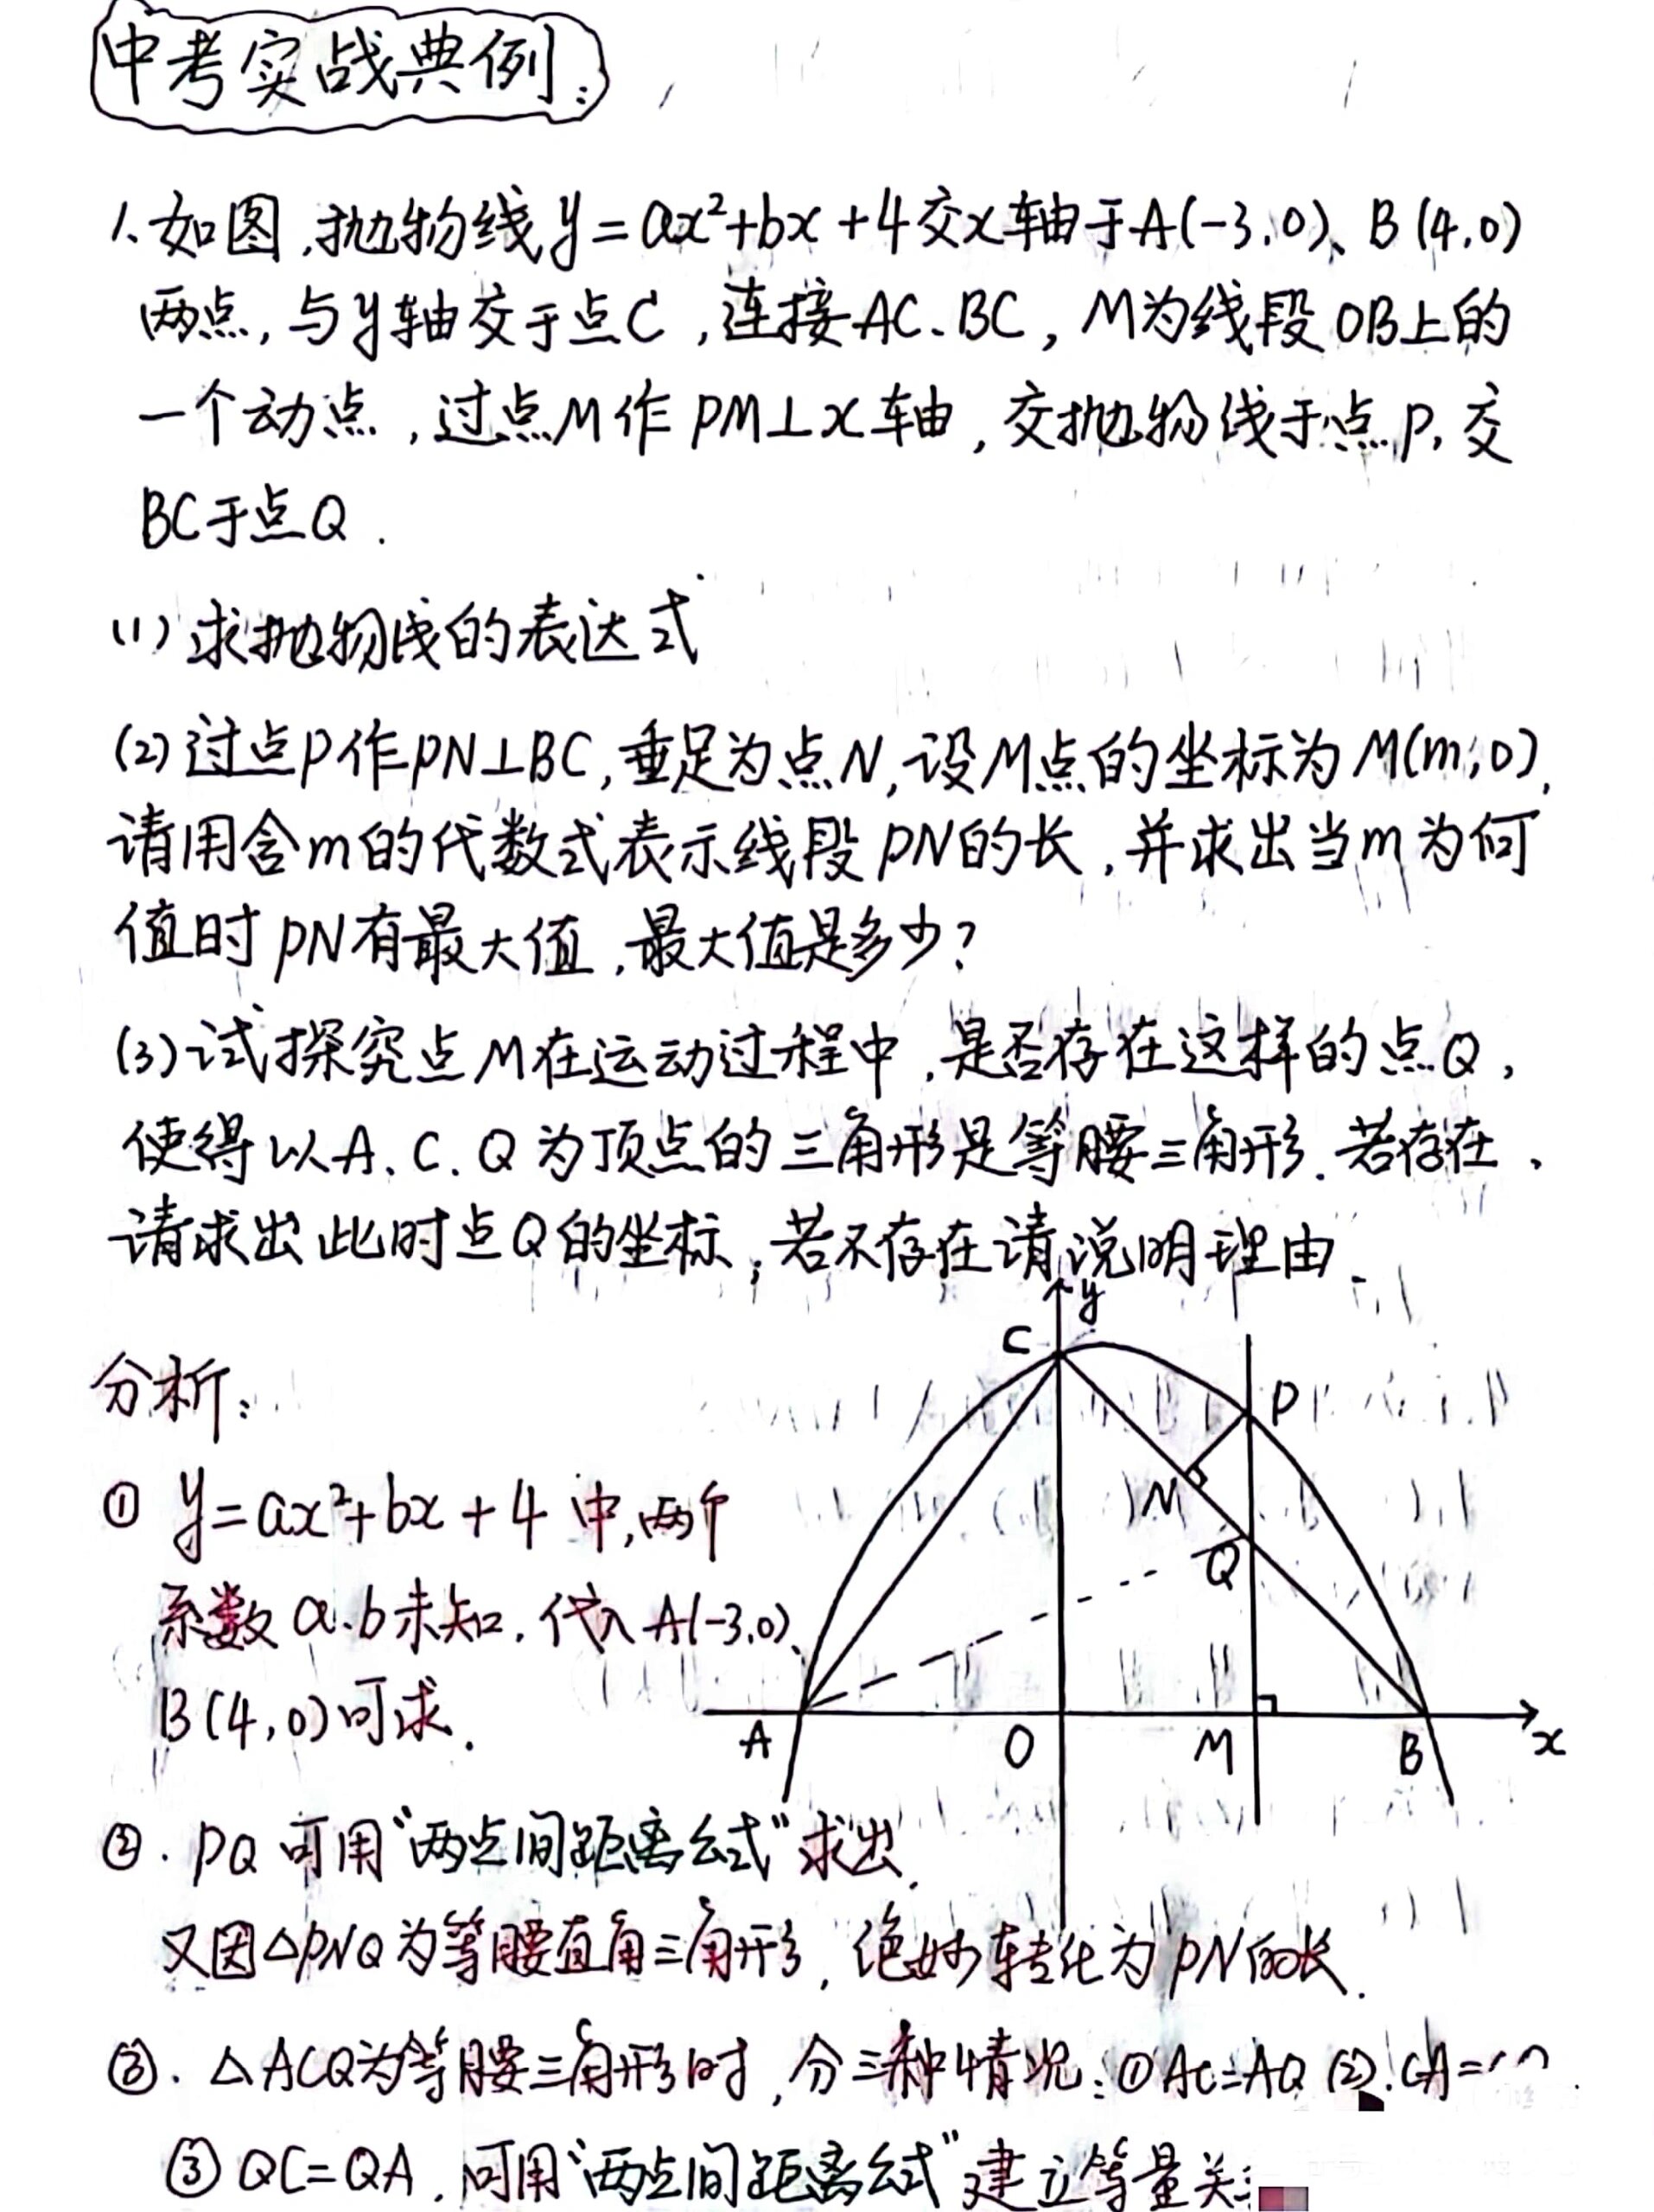 中考实战典例:
1.如图,抛物线y=ax²+bx+4交x轴于A(-3,0)、B(4,0)
两点,与y轴交于点C,连接AC、BC,M为线段OB上的
一个动点,过点M作PM⊥x轴,交抛物线于点P,交
BC于点Q.
(1)求抛物线的表达式
(2)过点P作PN⊥BC,垂足为点N,设M点的坐标为M(m,0),
请用含m的代数式表示线段PN的长,并求出当m为何
值时PN有最大值,最大值是多少?
(3)试探究点M在运动过程中,是否存在这样的点Q,
使得以A、C、Q为顶点的三角形是等腰三角形.若存在,
请求出此时点Q的坐标;若不存在请说明理由.
y
C
P
N
Q
A
O
M
B
x
分析:
① y=ax²+bx+4中,两个
系数a、b未知,代入A(-3,0)、
B(4,0)可求.
②.PQ可用“两点间距离公式”求出.
又因△PNQ为等腰直角三角形,绝妙转化为PN的长.
③.△ACQ为等腰三角形时,分三种情况:①AC=AQ ②.CA=
③QC=QA.可用“两点间距离公式”建立等量关